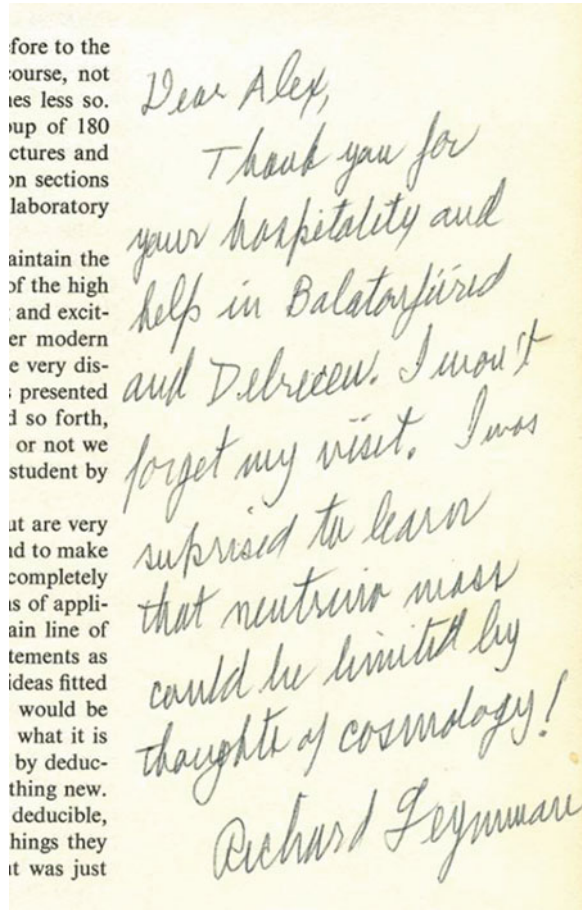 fore to the
ourse, not
es less so.
oup of 180
ctures and
on sections
laboratory
aintain the
of the high
and excit-
er modern
e very dis-
s presented
d so forth,
or not we
student by
ut are very
nd to make
completely
ns of appli-
ain line of
tements as
ideas fitted
would be
what it is
by deduc-
thing new.
deducible,
hings they
t was just
Dear Alex,
Thank you for
your hospitality and
help in Balatonfüred
and Debrecen. I won't
forget my visit. I was
suprised to learn
that neutrino mass
could be limited by
thoughts of cosmology!
Richard Feynman